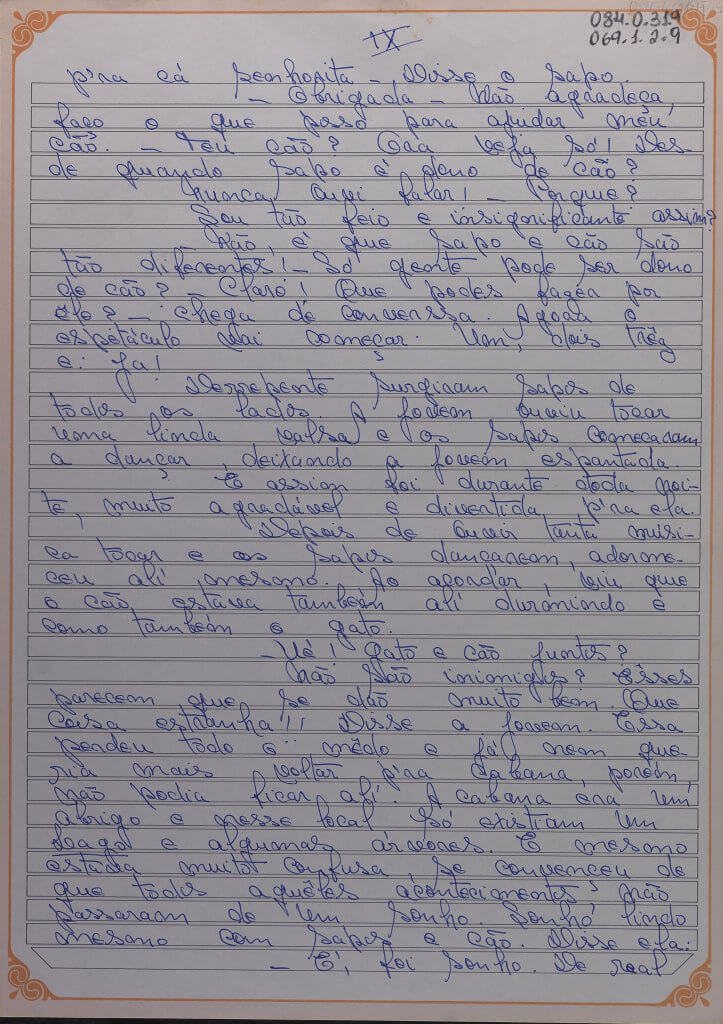 084.0.319
069.1.2.9
IX
p'ra cá senhorita - Disse o sapo.
- Obrigada - Não agradeça,
faço o que posso para ajudar meu
cão. - Teu cão? Ora veja só! Des-
de quando sapo é dono de cão?
Nunca, ouvi falar! - Porque?
Sou tão feio e insignificante assim?
Não, é que sapo e cão são
tão diferentes! - Só gente pode ser dono
de cão? - Claro! Que podes fazer por
ele? - chega de conversa. Agora o
espetáculo vai começar. Um, dois três
e: já!
Derrepente surgiram sapos de
todos os lados. A jovem ouviu tocar
uma linda valsa e os sapos começaram
a dançar, deixando a jovem espantada.
E assim foi durante toda noi-
te, muito agradável e divertida, p'ra ela.
Depois de ouvir tanta músi-
ca tocar e os sapos dançarem, adorme-
ceu ali mesmo. Ao acordar, viu que
o cão, estava também ali durmindo e
como também o gato.
- Ué! Gato e cão juntos?
Não são inimigos? Êsses
parecem que se dão muito bem. Que
coisa estranha!! Disse a jovem. Essa
perdeu todo o mêdo e já nem que-
ria mais voltar p'ra cabana, porém,
não podia ficar ali. A cabana éra um
abrigo e nesse local só existiam um
lago e algumas árvores. E mesmo
estava muito confusa, se convenceu de
que todos aquêles acontecimentos, não
passaram de um sonho. Sonho lindo
mesmo com sapos e cão. Disse ela:
- É, foi sonho. De real